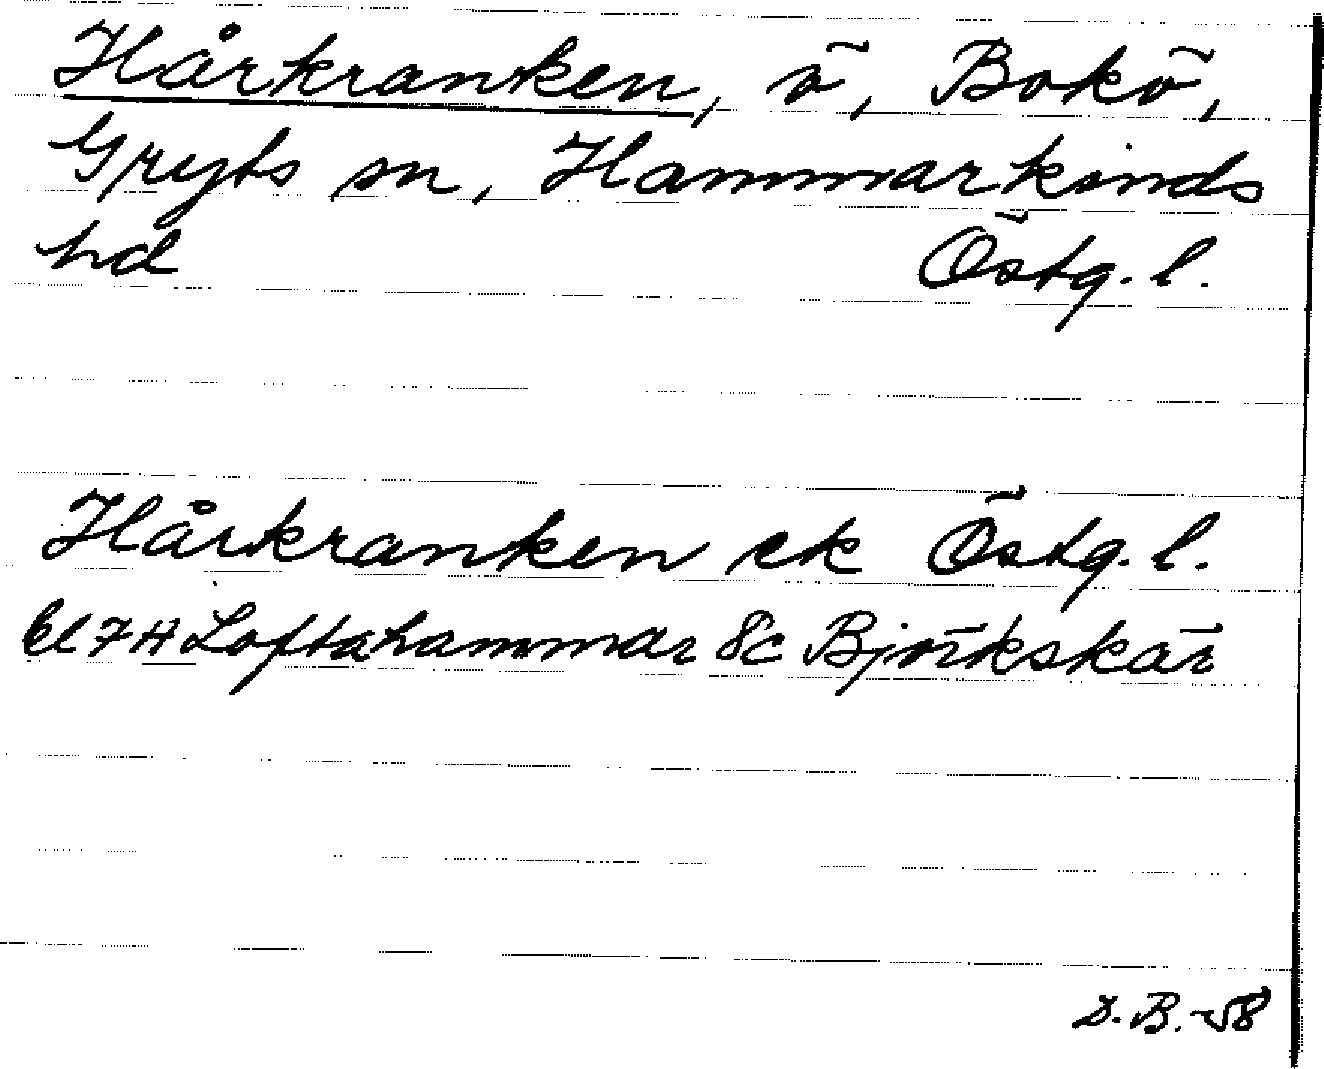 Hårkranken, ö, Bokö,
Gryts sn, Hammarkinds
hd Östg. l.
Hårkranken ek Östg. l.
bl 7H Loftahammar 8c Björkskär
D.B.-58